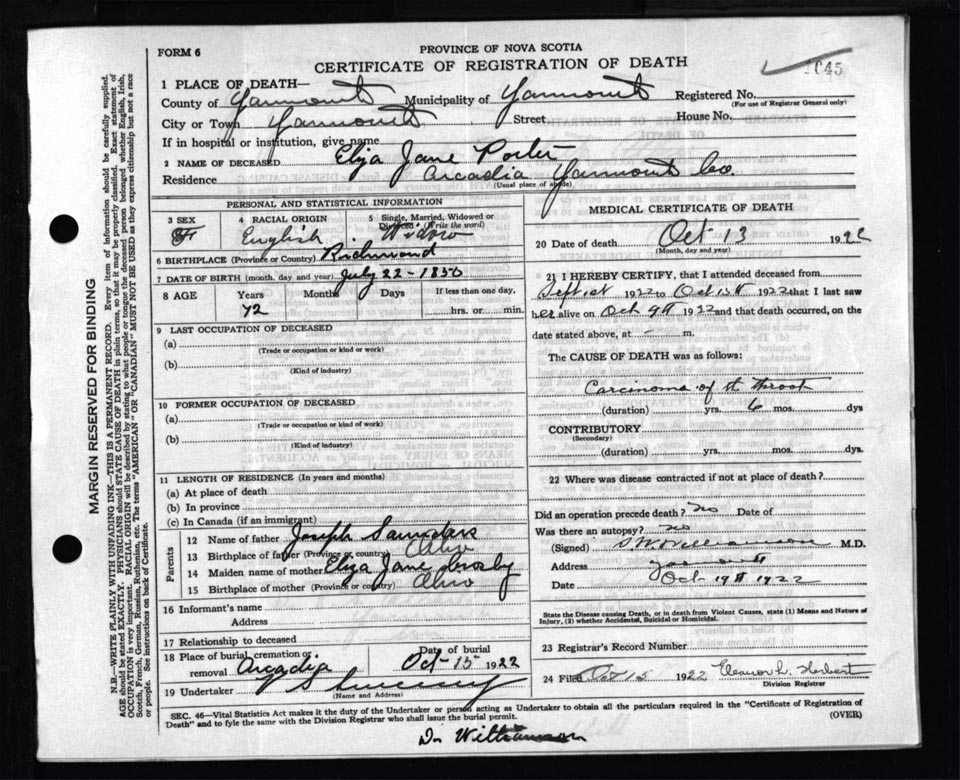 MARGIN RESERVED FOR BINDING
N.B.—WRITE PLAINLY WITH UNFADING INK—THIS IS A PERMANENT RECORD. Every item of information should be carefully supplied.
AGE should be stated EXACTLY. PHYSICIANS should STATE CAUSE OF DEATH in plain terms, so that it may be properly classified. Exact statement of
OCCUPATION is very important. RACIAL ORIGIN will be described by stating to what people or tongue the deceased person belonged whether English, Irish,
Scotch, French, German, Russian, Ruthenian, etc. The terms "AMERICAN" OR "CANADIAN" MUST NOT BE USED as they express citizenship but not a race
or people. See instructions on back of Certificate.
FORM 6
PROVINCE OF NOVA SCOTIA
CERTIFICATE OF REGISTRATION OF DEATH
1645
1 PLACE OF DEATH—
County of Yarmouth Municipality of Yarmouth Registered No.
(For use of Registrar General only)
City or Town Yarmouth Street House No.
If in hospital or institution, give name
2 NAME OF DECEASED Eliza Jane Porter
Residence Arcadia Yarmouth Co.
(Usual place of abode)
PERSONAL AND STATISTICAL INFORMATION
3 SEX 4 RACIAL ORIGIN 5 Single, Married, Widowed or
Divorced (Write the word)
F English Widow
6 BIRTHPLACE (Province or Country) Richmond
7 DATE OF BIRTH (month, day and year) July 22 - 1850
8 AGE Years Months Days If less than one day,
72 hrs. or min.
9 LAST OCCUPATION OF DECEASED
(a)
(Trade or occupation or kind or work)
(b)
(Kind of industry)
10 FORMER OCCUPATION OF DECEASED
(a)
(Trade or occupation or kind of work)
(b)
(Kind of industry)
11 LENGTH OF RESIDENCE (In years and months)
(a) At place of death
(b) In province
(c) In Canada (if an immigrant)
Parents
12 Name of father Joseph Saunders
13 Birthplace of father (Province or country)
14 Maiden name of mother Eliza Jane Crosby
15 Birthplace of mother (Province or country)
16 Informant's name
Address
17 Relationship to deceased
18 Place of burial, cremation or removal Arcadia Date of burial Oct 15 1922
19 Undertaker Sweeny
(Name and Address)
MEDICAL CERTIFICATE OF DEATH
20 Date of death Oct 13 1922
(Month, day and year)
21 I HEREBY CERTIFY, that I attended deceased from
Sept 1st 1922 to Oct 13th 1922 that I last saw
her alive on Oct 9th 1922 and that death occurred, on the
date stated above, at - m.
The CAUSE OF DEATH was as follows:
Carcinoma of the throat
(duration) yrs. 6 mos. dys
CONTRIBUTORY
(Secondary)
(duration) yrs. mos. dys.
22 Where was disease contracted if not at place of death?
Did an operation precede death? no Date of
Was there an autopsy? no
(Signed) S. W. Williamson M.D.
Address Yarmouth
Date Oct 19th 1922
State the Disease causing Death, or in death from Violent Causes, state (1) Means and Nature of
Injury, (2) whether Accidental, Suicidal or Homicidal.
23 Registrar's Record Number
24 Filed Oct 15 1922 Eleanor L. Herbert
Division Registrar
SEC. 46—Vital Statistics Act makes it the duty of the Undertaker or person acting as Undertaker to obtain all the particulars required in the "Certificate of Registration of
Death" and to fyle the same with the Division Registrar who shall issue the burial permit. (OVER)
Dr Williamson